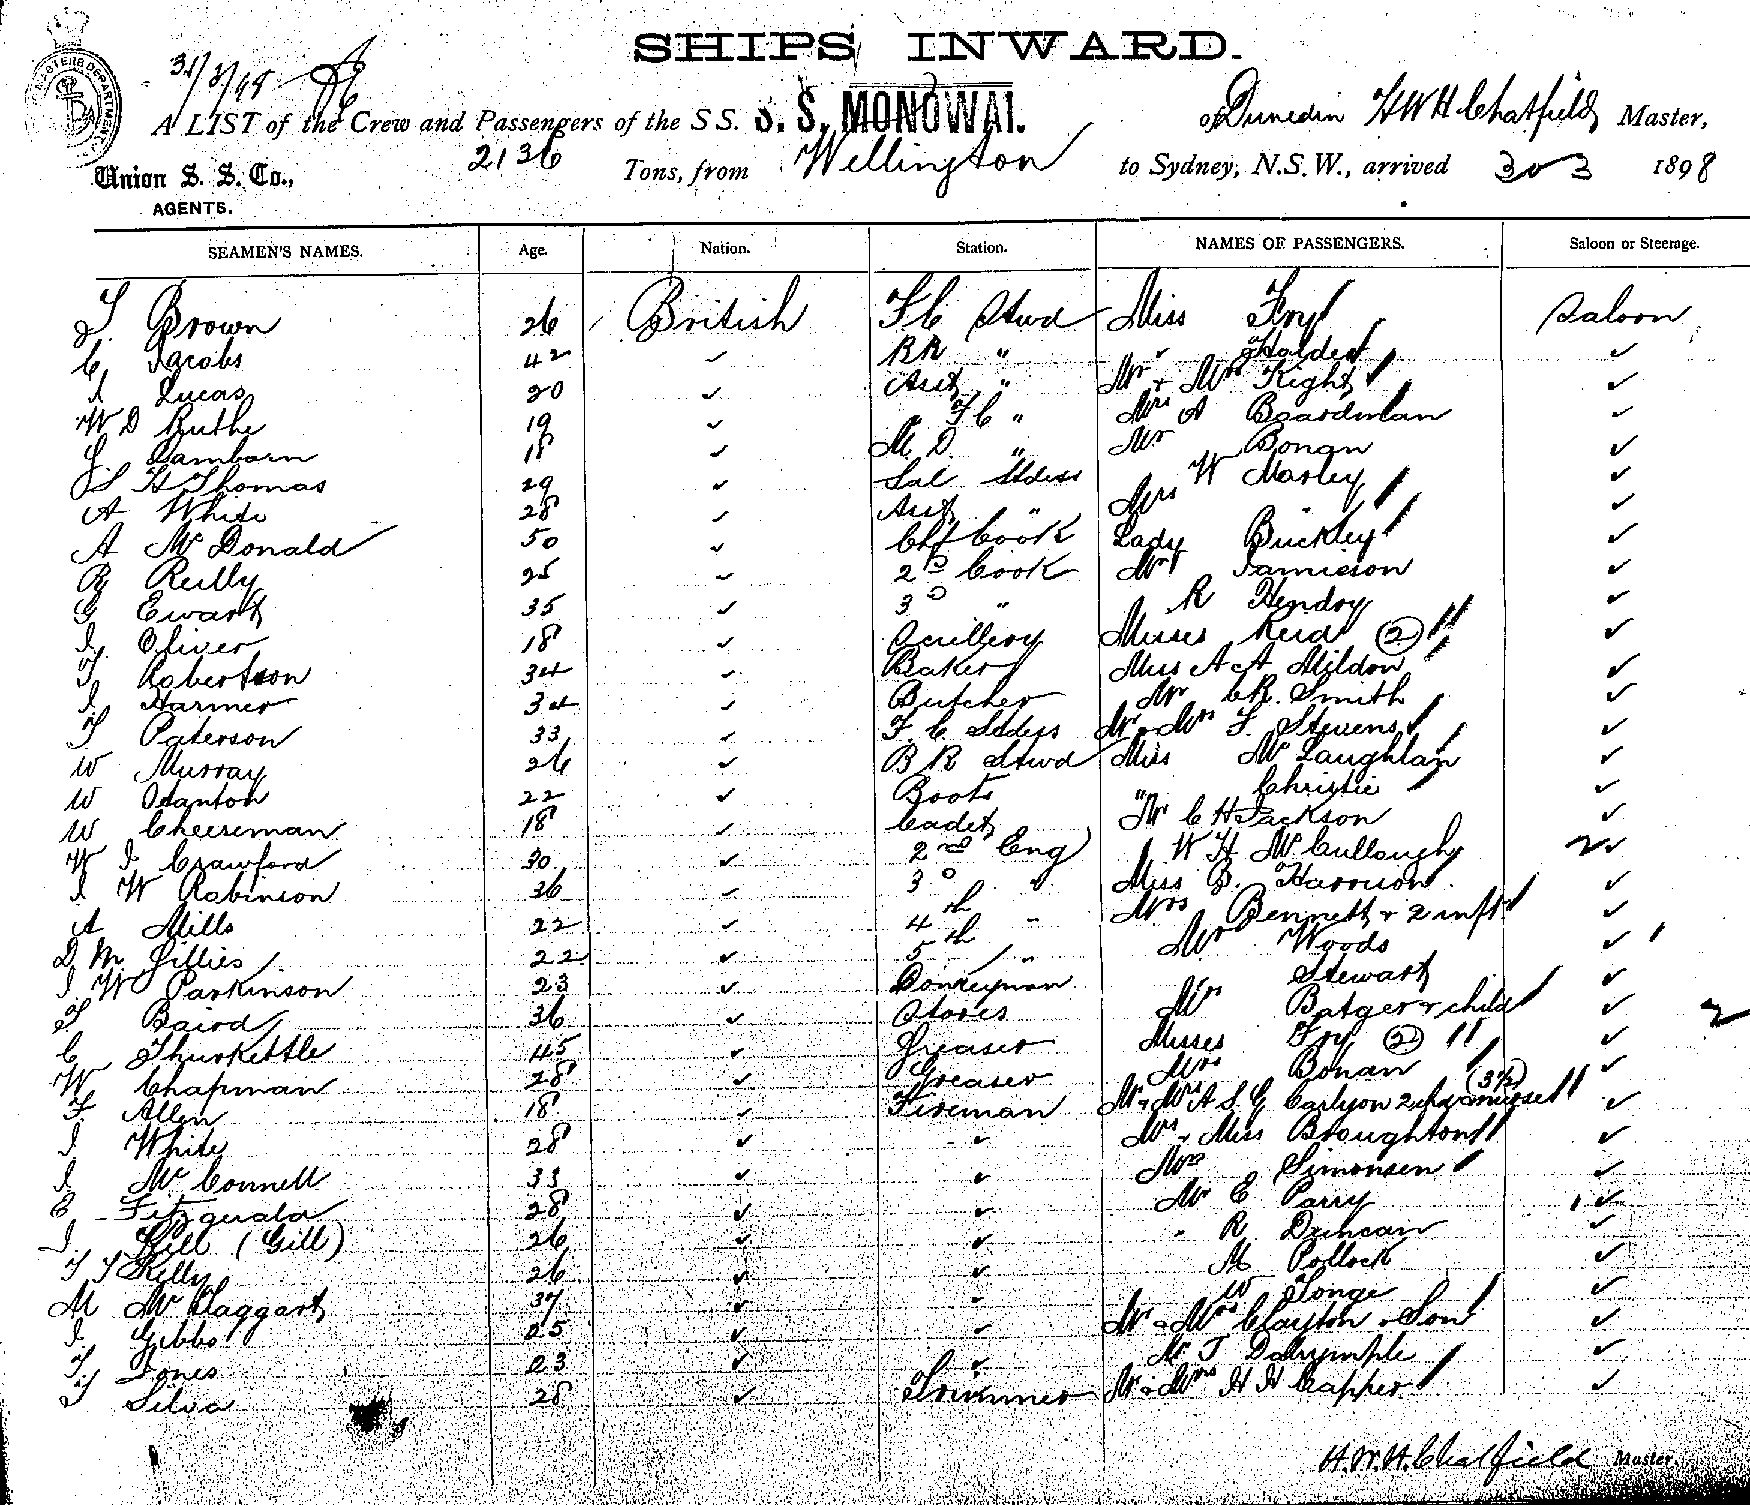 SHIPS INWARD.
31/3/98
MASTERS DEPARTMENT
A LIST of the Crew and Passengers of the SS. S. S. MONOWAI. of Dunedin H W H Chatfield Master,
Union S. S. Co., 2136 Tons, from Wellington to Sydney, N.S.W., arrived 30 3 1898
AGENTS.
SEAMEN'S NAMES. Age. Nation. Station. NAMES OF PASSENGERS. Saloon or Steerage.
Brown 26 British F C Stwd Miss Fry Saloon
C Jacobs 42 ✓ BR " ✓ Holder ✓
I Lucas 20 ✓ Asst " Mr + Mrs Kight ✓
W D Ruthe 19 ✓ " F C " Mrs A Boardman ✓
Lamborn 18 ✓ M. D. " Mr Bonan ✓
H Thomas 29 ✓ Sal Stdess W Morley ✓
A White 28 ✓ Asst " Mrs ✓
A McDonald 50 ✓ Chf Cook Lady Buckley ✓
R Reilly 25 ✓ 2D Cook Mr Jamieson ✓
G Ewart 35 ✓ 3D " R Hendry ✓
I. Oliver 18 ✓ Scullery Misses Reid (2) ✓
T Robertson 34 ✓ Baker Miss A & A Mildon ✓
I. Harmer 34 ✓ Butcher Mr C R. Smith ✓
T Paterson 33 ✓ F. C Stdess Mr & Mrs F. Stevens ✓
W Murray 26 ✓ B R Stwd Miss McLaughlan ✓
W Stanton 22 ✓ Boots " Christie ✓
W Cheeseman 18 ✓ Cadet Mr C H Jackson ✓
W I. Crawford 30 ✓ 2nd Eng W H McCullough ✓
I W Robinson 36 ✓ 3D " Miss B. Harrison ✓
A Mills 22 ✓ 4th " Mrs Bennett + 2 infts ✓
D M Gillies 22 ✓ 5th " Mr Woods ✓
I. W Parkinson 23 ✓ Donkeyman Stewart ✓
T Baird 36 ✓ Stores Mrs Batger + child ✓
C Thurkettle 45 ✓ Greaser Misses Fry (2) ✓
W Chapman 28 ✓ Greaser Mrs Bonan ✓
F Allen 18 ✓ Fireman Mr & Mrs A S G Carlyon 2 nurse ✓
I White 28 ✓ ✓ Mrs & Miss Broughton ✓
I McConnell 33 ✓ ✓ Mrs Simonsen ✓
E Fitzgerald 28 ✓ ✓ Mr E Parry ✓
I. Gill (Gill) 26 ✓ ✓ " R Duncan ✓
T J Kelly 26 ✓ ✓ M Pollock ✓
M McTaggart 37 ✓ ✓ W Tonge ✓
I. Gibbs 25 ✓ ✓ Mr & Mrs Clayton & Son ✓
T Jones 23 ✓ ✓ Mr J Dalrymple ✓
T Silva 28 ✓ Trimmer Mr & Mrs H H Capper ✓
H.W.H. Chatfield Master